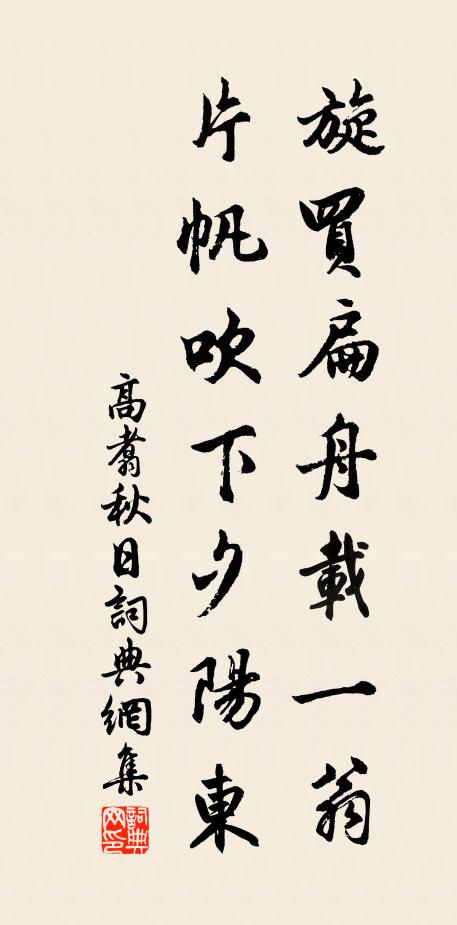 旋買扁舟載一翁
片帆吹下夕陽東
高翥秋日詞典網集
詞典網印